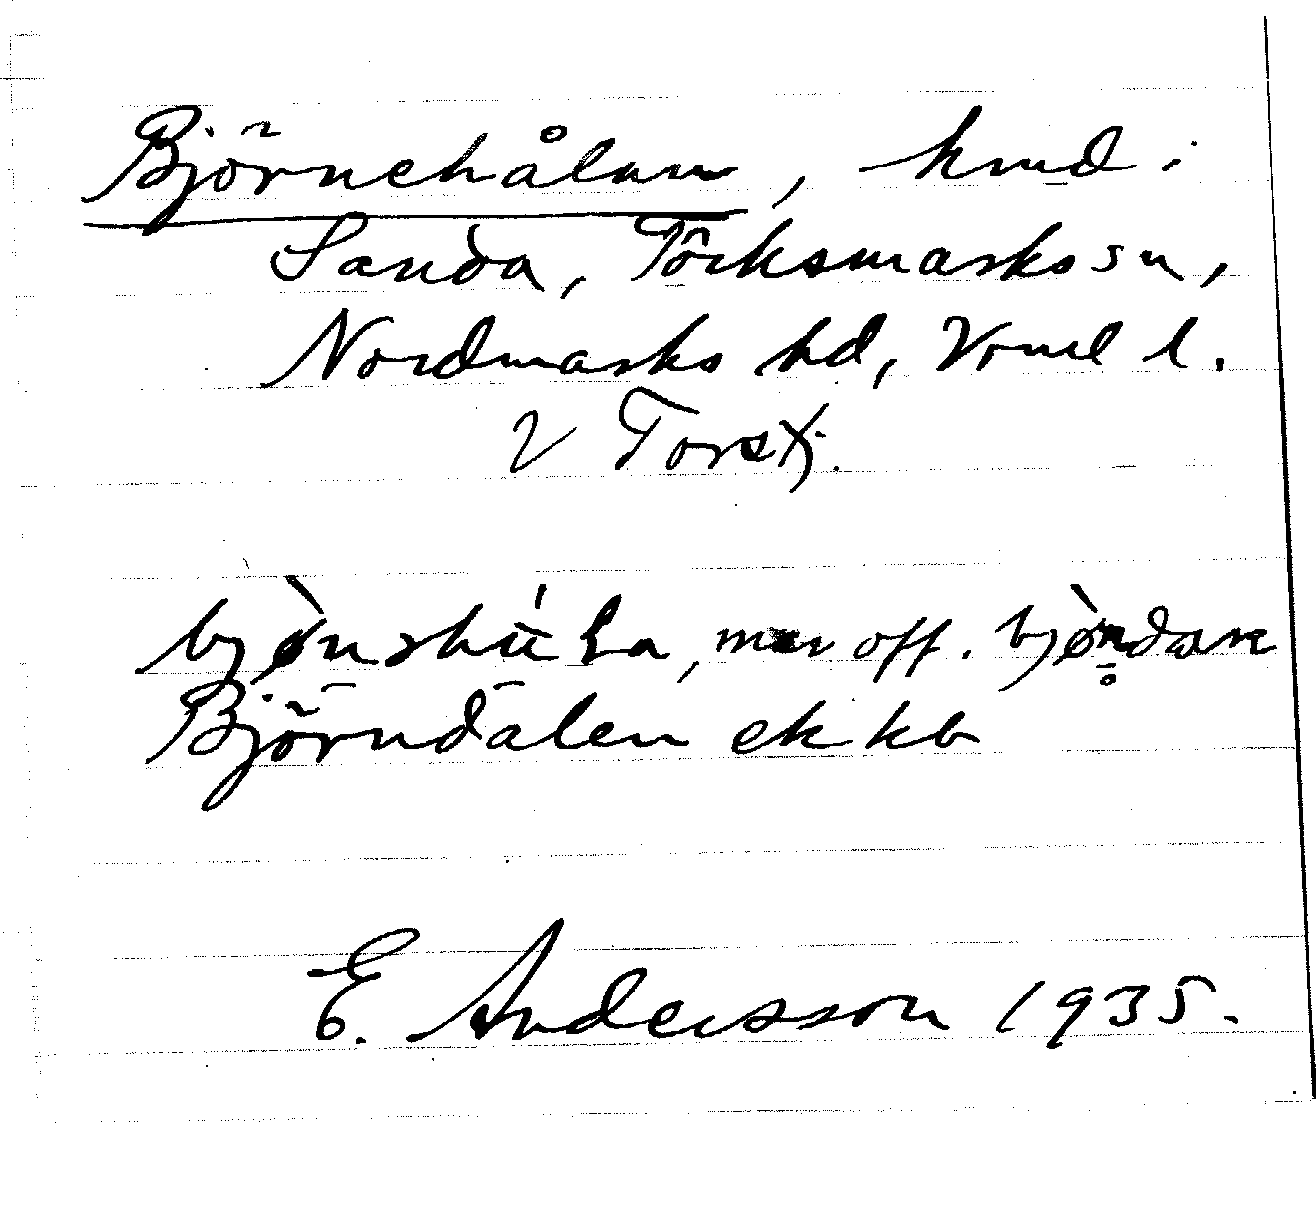 Björnehålan, hmd i
Sanda, Töcksmarks sn,
Nordmarks hd, Vrml l.
V
bjønshú̇La, mer off. bjøn̥daɴ
Björndalen ek kb
E. Andersson 1935.